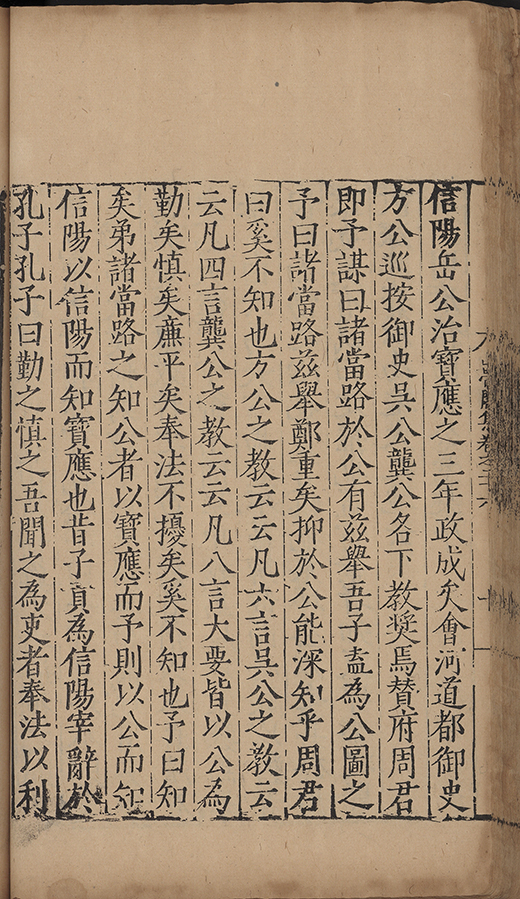 信陽岳公治寶應之三年政成矣會河道都御史
方公巡按御史吳公龔公各下教奬焉贊府周君
即予謀曰諸當路於公有兹舉吾子盍為公圖之
予曰諸當路兹舉鄭重矣抑於公能深知乎周君
曰奚不知也方公之教云云凡六言吳公之教云
云凡四言龔公之教云云凡八言大要皆以公為
勤矣慎矣亷平矣奉法不擾矣奚不知也予曰知
矣弟諸當路之知公者以寶應而予則以公而知
信陽以信陽而知寶應也昔子貢為信陽宰辭於
孔子孔子曰勤之慎之吾聞之為吏者奉法以利